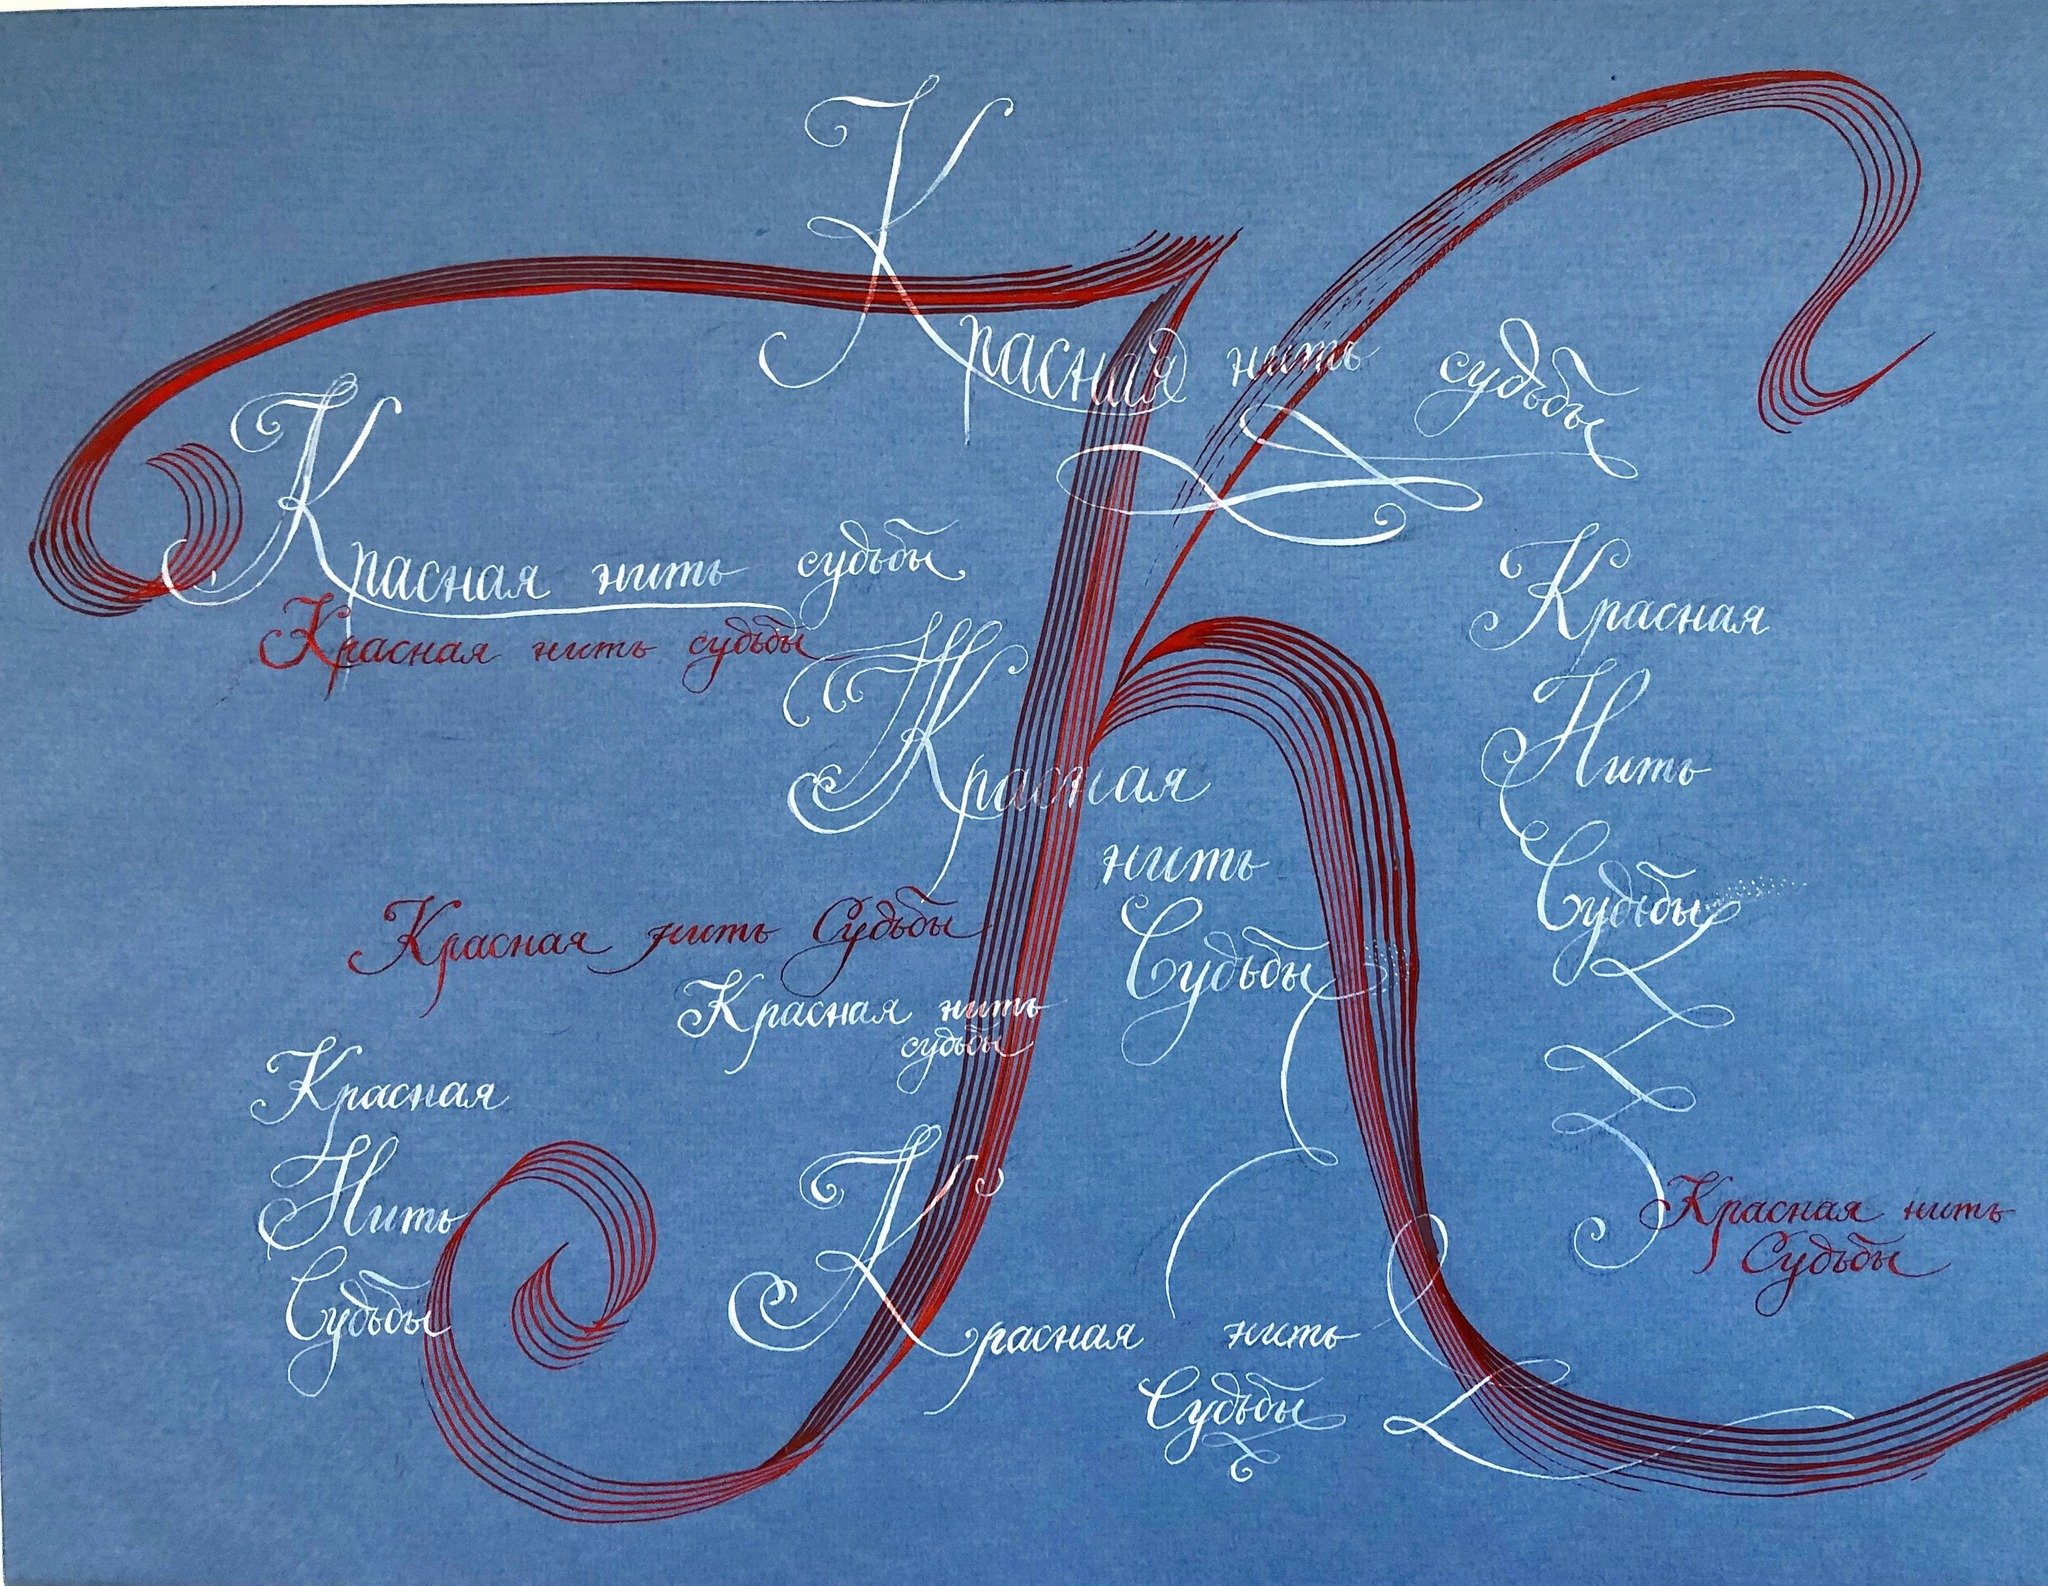 К
Красная нить судьбы
Красная нить судьбы
Красная нить судьбы
Красная
нить
Судьбы
Красная
Нить
Судьбы
Красная нить Судьбы
Красная нить
судьбы
Красная
Нить
Судьбы
Красная нить
Судьбы
Красная нить
Судьбы